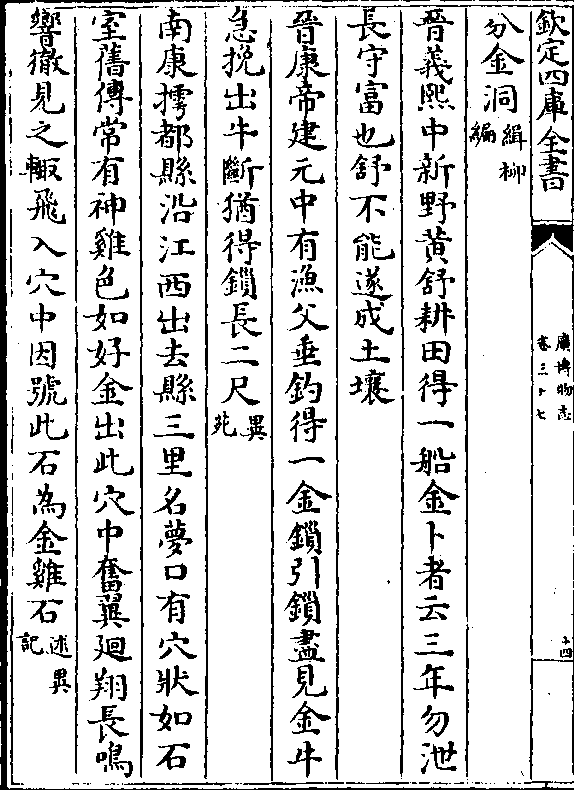 欽定四庫全書
廣博物志
卷三十七
十四
分金洞緝柳編
晉義熙中新野黃舒耕田得一船金卜者云三年勿泄
長守富也舒不能遂成土壤
晉康帝建元中有漁父垂釣得一金鎖引鎖盡見金牛
急挽出牛斷猶得鎖長二尺異苑
南康㩀都縣沿江西出去縣三里名夢口有穴狀如石
室舊傳常有神雞色如好金出此穴中奮翼廻翔長鳴
響徹見之輙飛入穴中因號此石為金雞石述異記